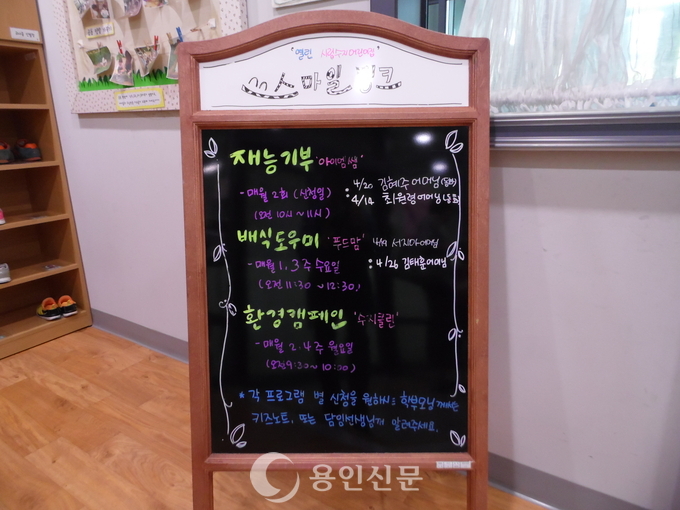 "열린
스마일 링크
재능기부 '아이엠쌤'
- 매월 2회 (신청일)
(오전 10시~11시)
: 4/20 김혜주 어머님
4/14 최원령 어머님
배식도우미 '푸드맘'
- 매월 1, 3주 수요일
(오전 11:30 ~ 12:30)
4/19 서지아어머님
: 4/26 김태훈어머님
환경캠페인 '수지클린'
- 매월 2.4주 월요일
(오전 9:30 ~ 10:00)
* 각 프로그램 별 신청을 원하시는 학부모님께서는
키즈노트, 또는 담임선생님께 알려주세요.
용인신문